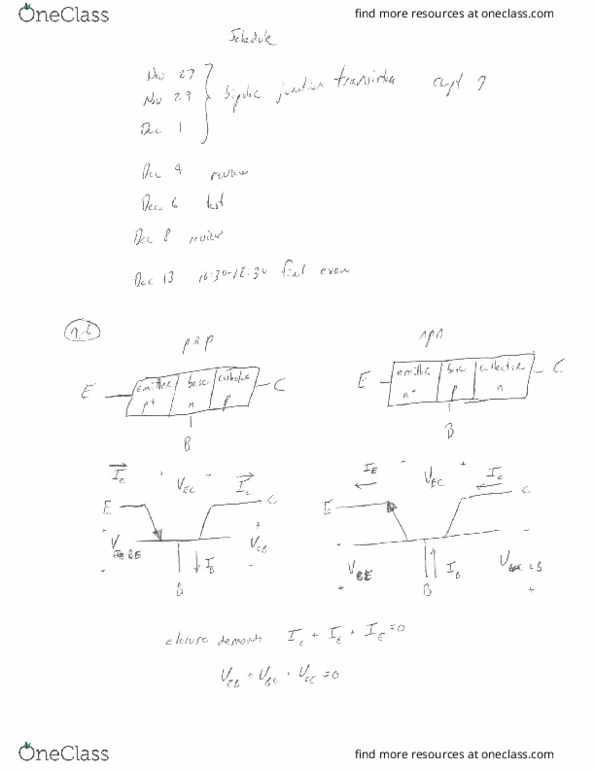 OneClass
find more resources at oneclass.com
Schedule
Nov 27
Nov 29
Dec 1
bipolar junction transistor
Dec 4 review
Dec 6 test
Dec 8 review
Dec 13 10:30-12:30 final exam
pnp
npn
E emitter p+ base n collector p C
B
E emitter n+ base p collector n C
B
I_c + V_EC - I_c
E C
V_EB I_B V_CB
B
I_E - V_EC + I_c
E C
V_BE I_B
B
closure demands I_c + I_E + I_E = 0
V_EB + V_BC + V_CE = 0
OneClass
find more resources at oneclass.com